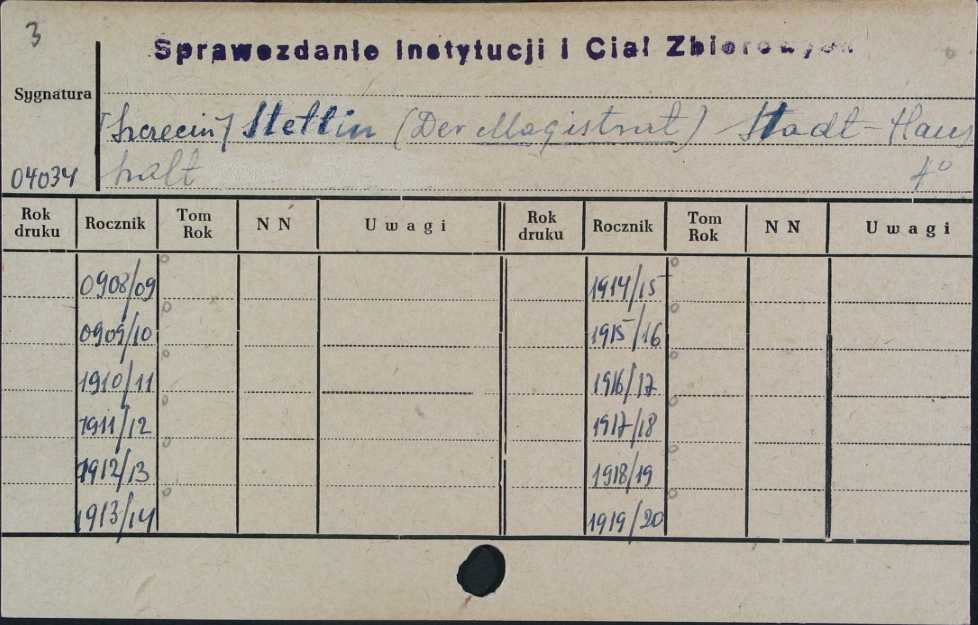 3
Sprawozdanie Instytucji i Ciał Zbiorowych
Sygnatura
[Szczecin] Stettin (Der Magistrat) Stadt-Haus
04034 halt 4°
Rok druku Rocznik Tom Rok N N Uwagi Rok druku Rocznik Tom Rok N N Uwagi
0908/09 1914/15
0909/10 1915/16
1910/11 1916/17
1911/12 1917/18
1912/13 1918/19
1913/14 1919/20